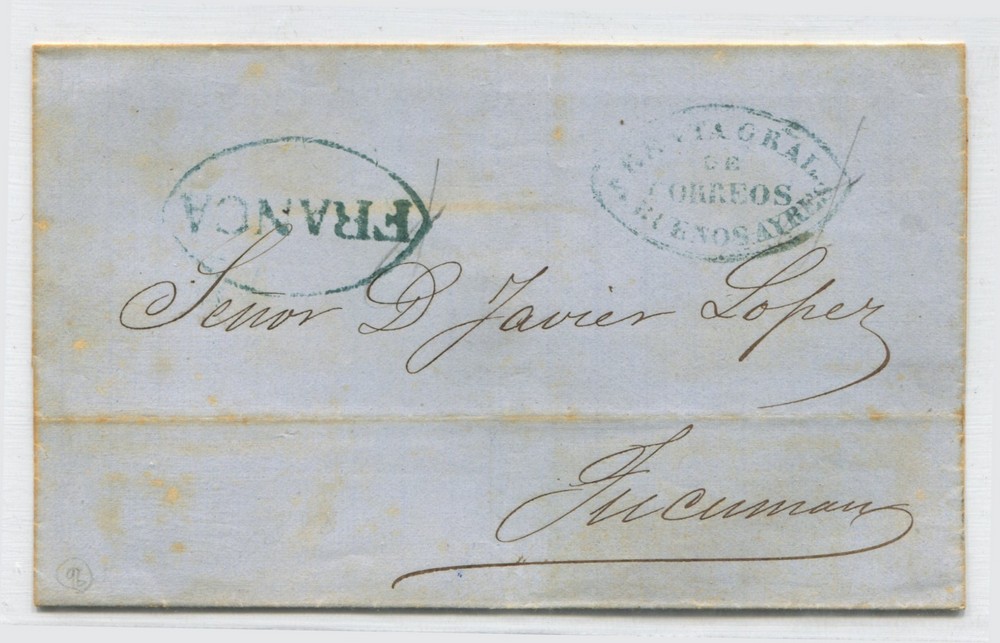 FRANCA
RENTA GRAL.
DE
CORREOS
BUENOS AYRES
Señor D Javier Lopez
Tucuman